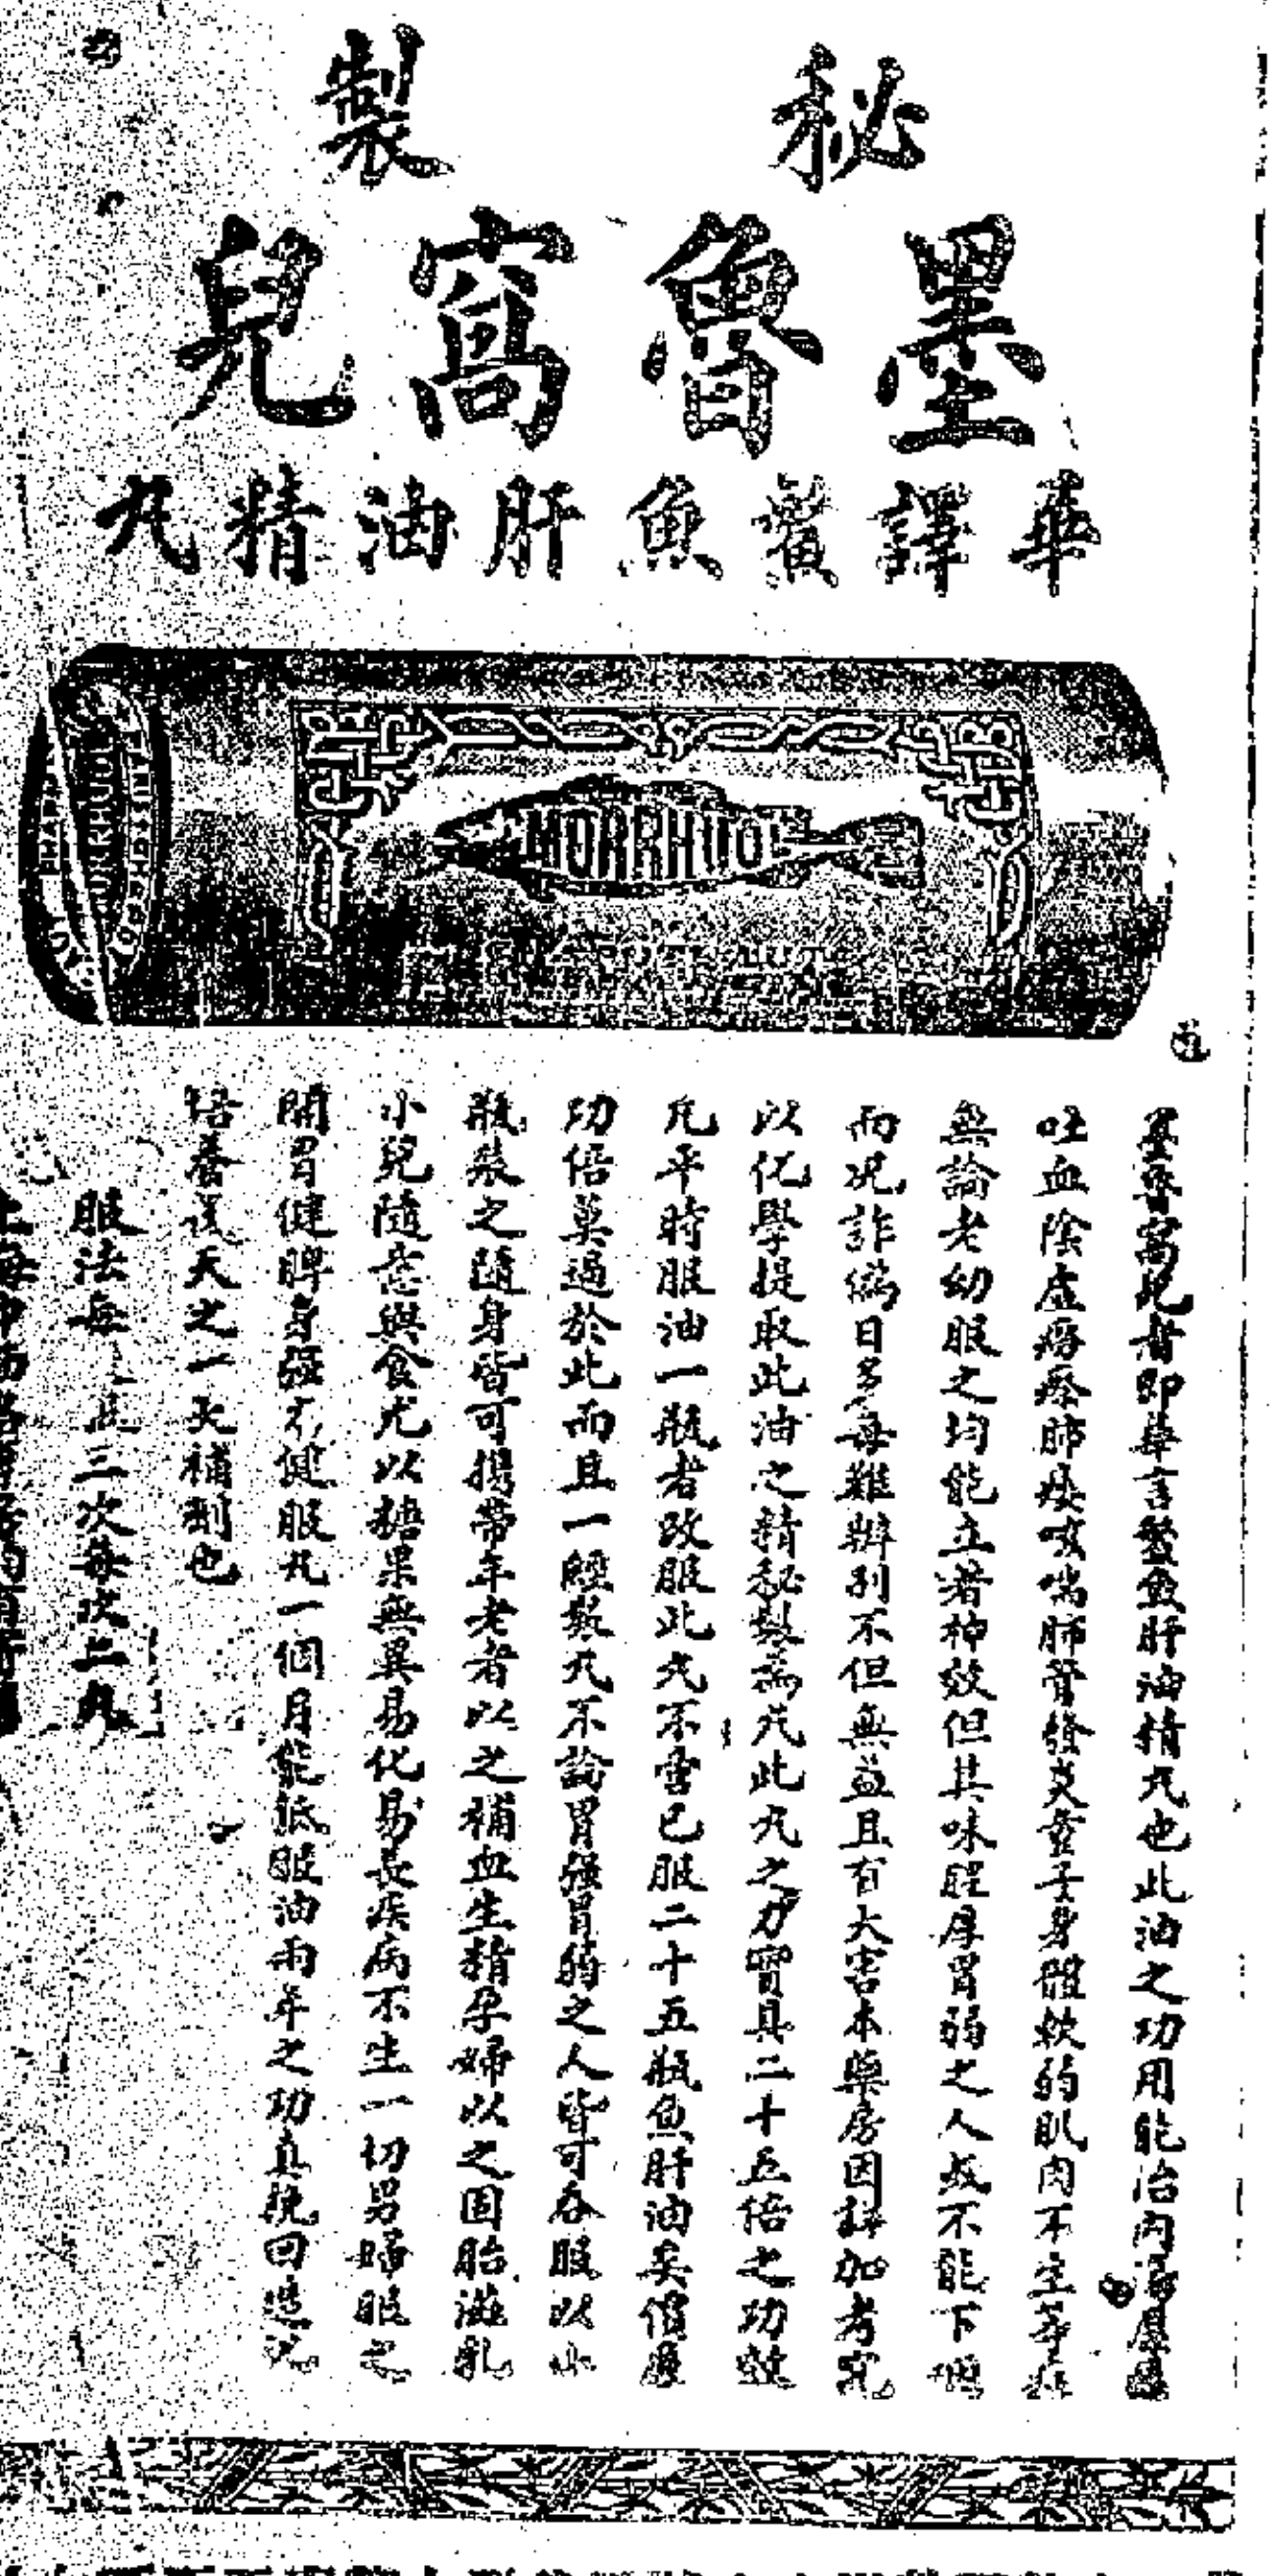 秘製
墨魯窩兒
華譯鱉魚肝油精丸
MORRHUOL
MORRHUOL
墨魯窩兒者即華言鱉魚肝油精丸也此油之功用能治內傷
吐血陰虛癆瘵肺痿咳喘肺管發炎童子身體軟弱肌肉不生等症
無論老幼服之均能立著神效但其味腥厚胃弱之人或不能下咽
而况詐偽日多每難辦別不但無益且有大害本藥房因詳加考究
以化學提取此油之精秘製為丸此丸之力實具二十五倍之功效
凡平時服油一瓶者改服此丸不啻已服二十五瓶魚肝油矣價廉
功倍莫過於此而且一經製丸不論胃強胃弱之人皆可吞服以小
瓶裝之隨身皆可攜帶年老者以之補血生精孕婦以之固胎滋乳
小兒隨意與食尤以糖果無異易化易長疾病不生一切男婦服之
開胃健脾身強 健服丸一個月能抵服油兩年之功真挽回造化
培養後天之一大補劑也
服法每 三次每次二丸